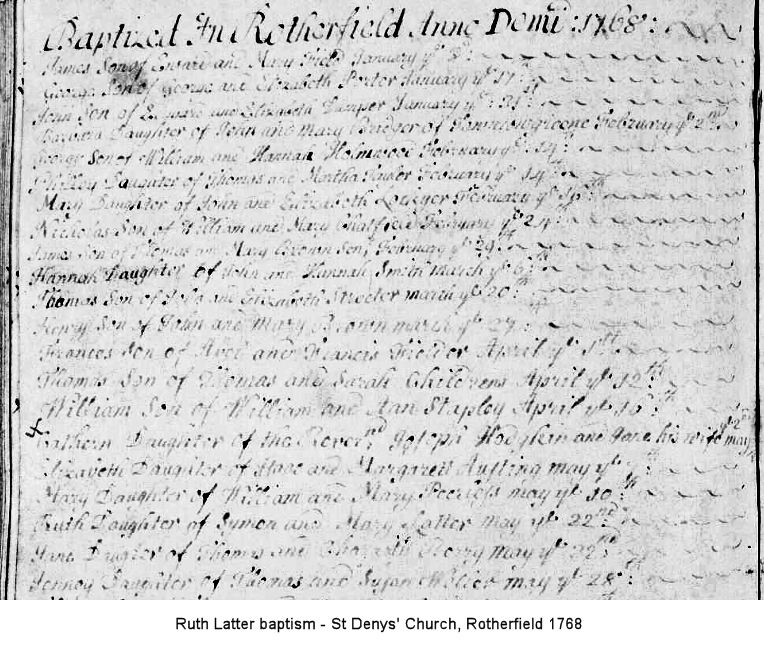 Baptized In Rotherfield Anno Domi: 1768:
James Son of Edward and Mary Field January ye
George Son of George and Elizabeth Porter January ye 17th
John Son of Edward and Elizabeth January ye 31st
Barbara Daughter of John and Mary Bridger of February ye 2nd
George Son of William and Hannah Holmwood February ye 14th
Daughter of Thomas and Martha February ye 14th
Mary Daughter of John and Elizabeth February ye
Nicholas Son of William and Mary Chatfield February ye 24th
James Son of Thomas and Mary Brown Son, February ye 29th
Hannah Daughter of John and Hannah Smith march ye 6th
Thomas Son of and Elizabeth Streeter march ye 20th
Henry Son of John and Mary Brown march ye 27
Frances Son of and Francis Fielder April ye
Thomas Son of Thomas and Sarah Childrens April ye 12th
William Son of William and Aan Stapley April ye 10th
Cathern Daughter of the Revernd Joseph Hodgkin and Jane his wife may ye 2nd
Elizabeth Daughter of and Margarett may ye
Mary Daughter of William and Mary Peerless may ye 10th
Ruth Daughter of Symon and Mary Latter may ye 22nd
Jane Daugter of Thomas and Elizabeth may ye 22nd
Daughter of Thomas and Susan may ye 28th
Ruth Latter baptism - St Denys' Church, Rotherfield 1768